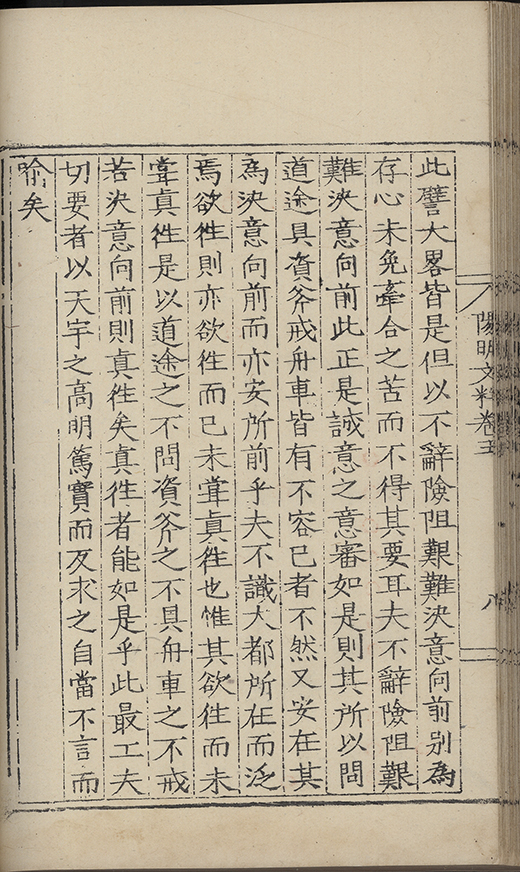 陽明文粹卷五
八
此譬大畧皆是但以不辭險阻艱難決意向前别為
存心未免牽合之苦而不得其要耳夫不辭險阻艱
難決意向前此正是誠意之意審如是則其所以問
道途具資斧戒舟車皆有不容已者不然又安在其
為決意向前而亦安所前乎夫不識大都所在而泛
焉欲徃則亦欲徃而已未甞真徃也惟其欲徃而未
甞真徃是以道途之不問資斧之不具舟車之不戒
若決意向前則真徃矣真徃者能如是乎此最工夫
切要者以天宇之高明篤實而反求之自當不言而
喻矣